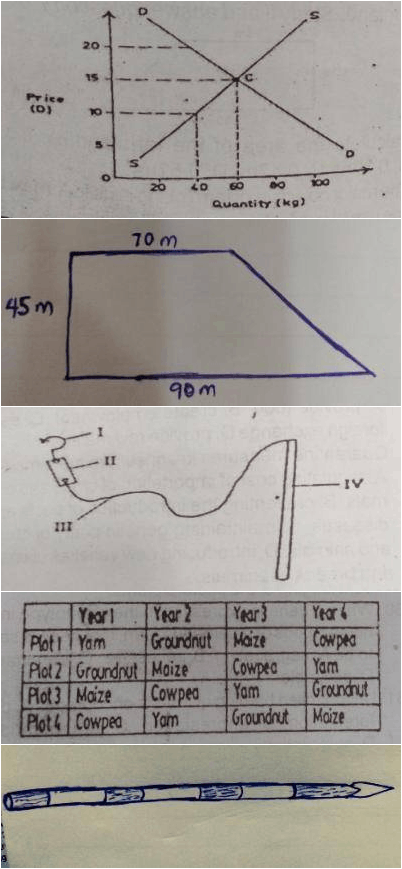 D
S
20
15
C
Price
(D)
10
5
S
D
0
20
40
60
80
100
Quantity (kg)
70 m
45 m
90 m
I
II
IV
III
Year 1 Year 2 Year 3 Year 4
Plot 1 Yam Groundnut Maize Cowpea
Plot 2 Groundnut Maize Cowpea Yam
Plot 3 Maize Cowpea Yam Groundnut
Plot 4 Cowpea Yam Groundnut Maize